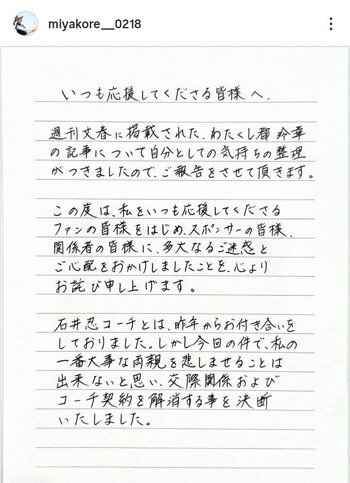 miyakore__0218
いつも応援してくださる皆様へ.
週刊文春に掲載された、わたくし都 玲華
の記事について自分としての気持ちの整理
がつきましたので、ご報告をさせて頂きます。
この度は、私をいつも応援してくださる
ファンの皆様をはじめ、スポンサーの皆様、
関係者の皆様に、多大なるご迷惑と
ご心配をおかけしましたことを、心より
お詫び申し上げます。
石井忍コーチとは、昨年からお付き合いを
しておりました。しかし今回の件で、私の
一番大事な両親を悲しませることは
出来ないと思い、交際関係および
コーチ契約を解消する事を決断
いたしました。